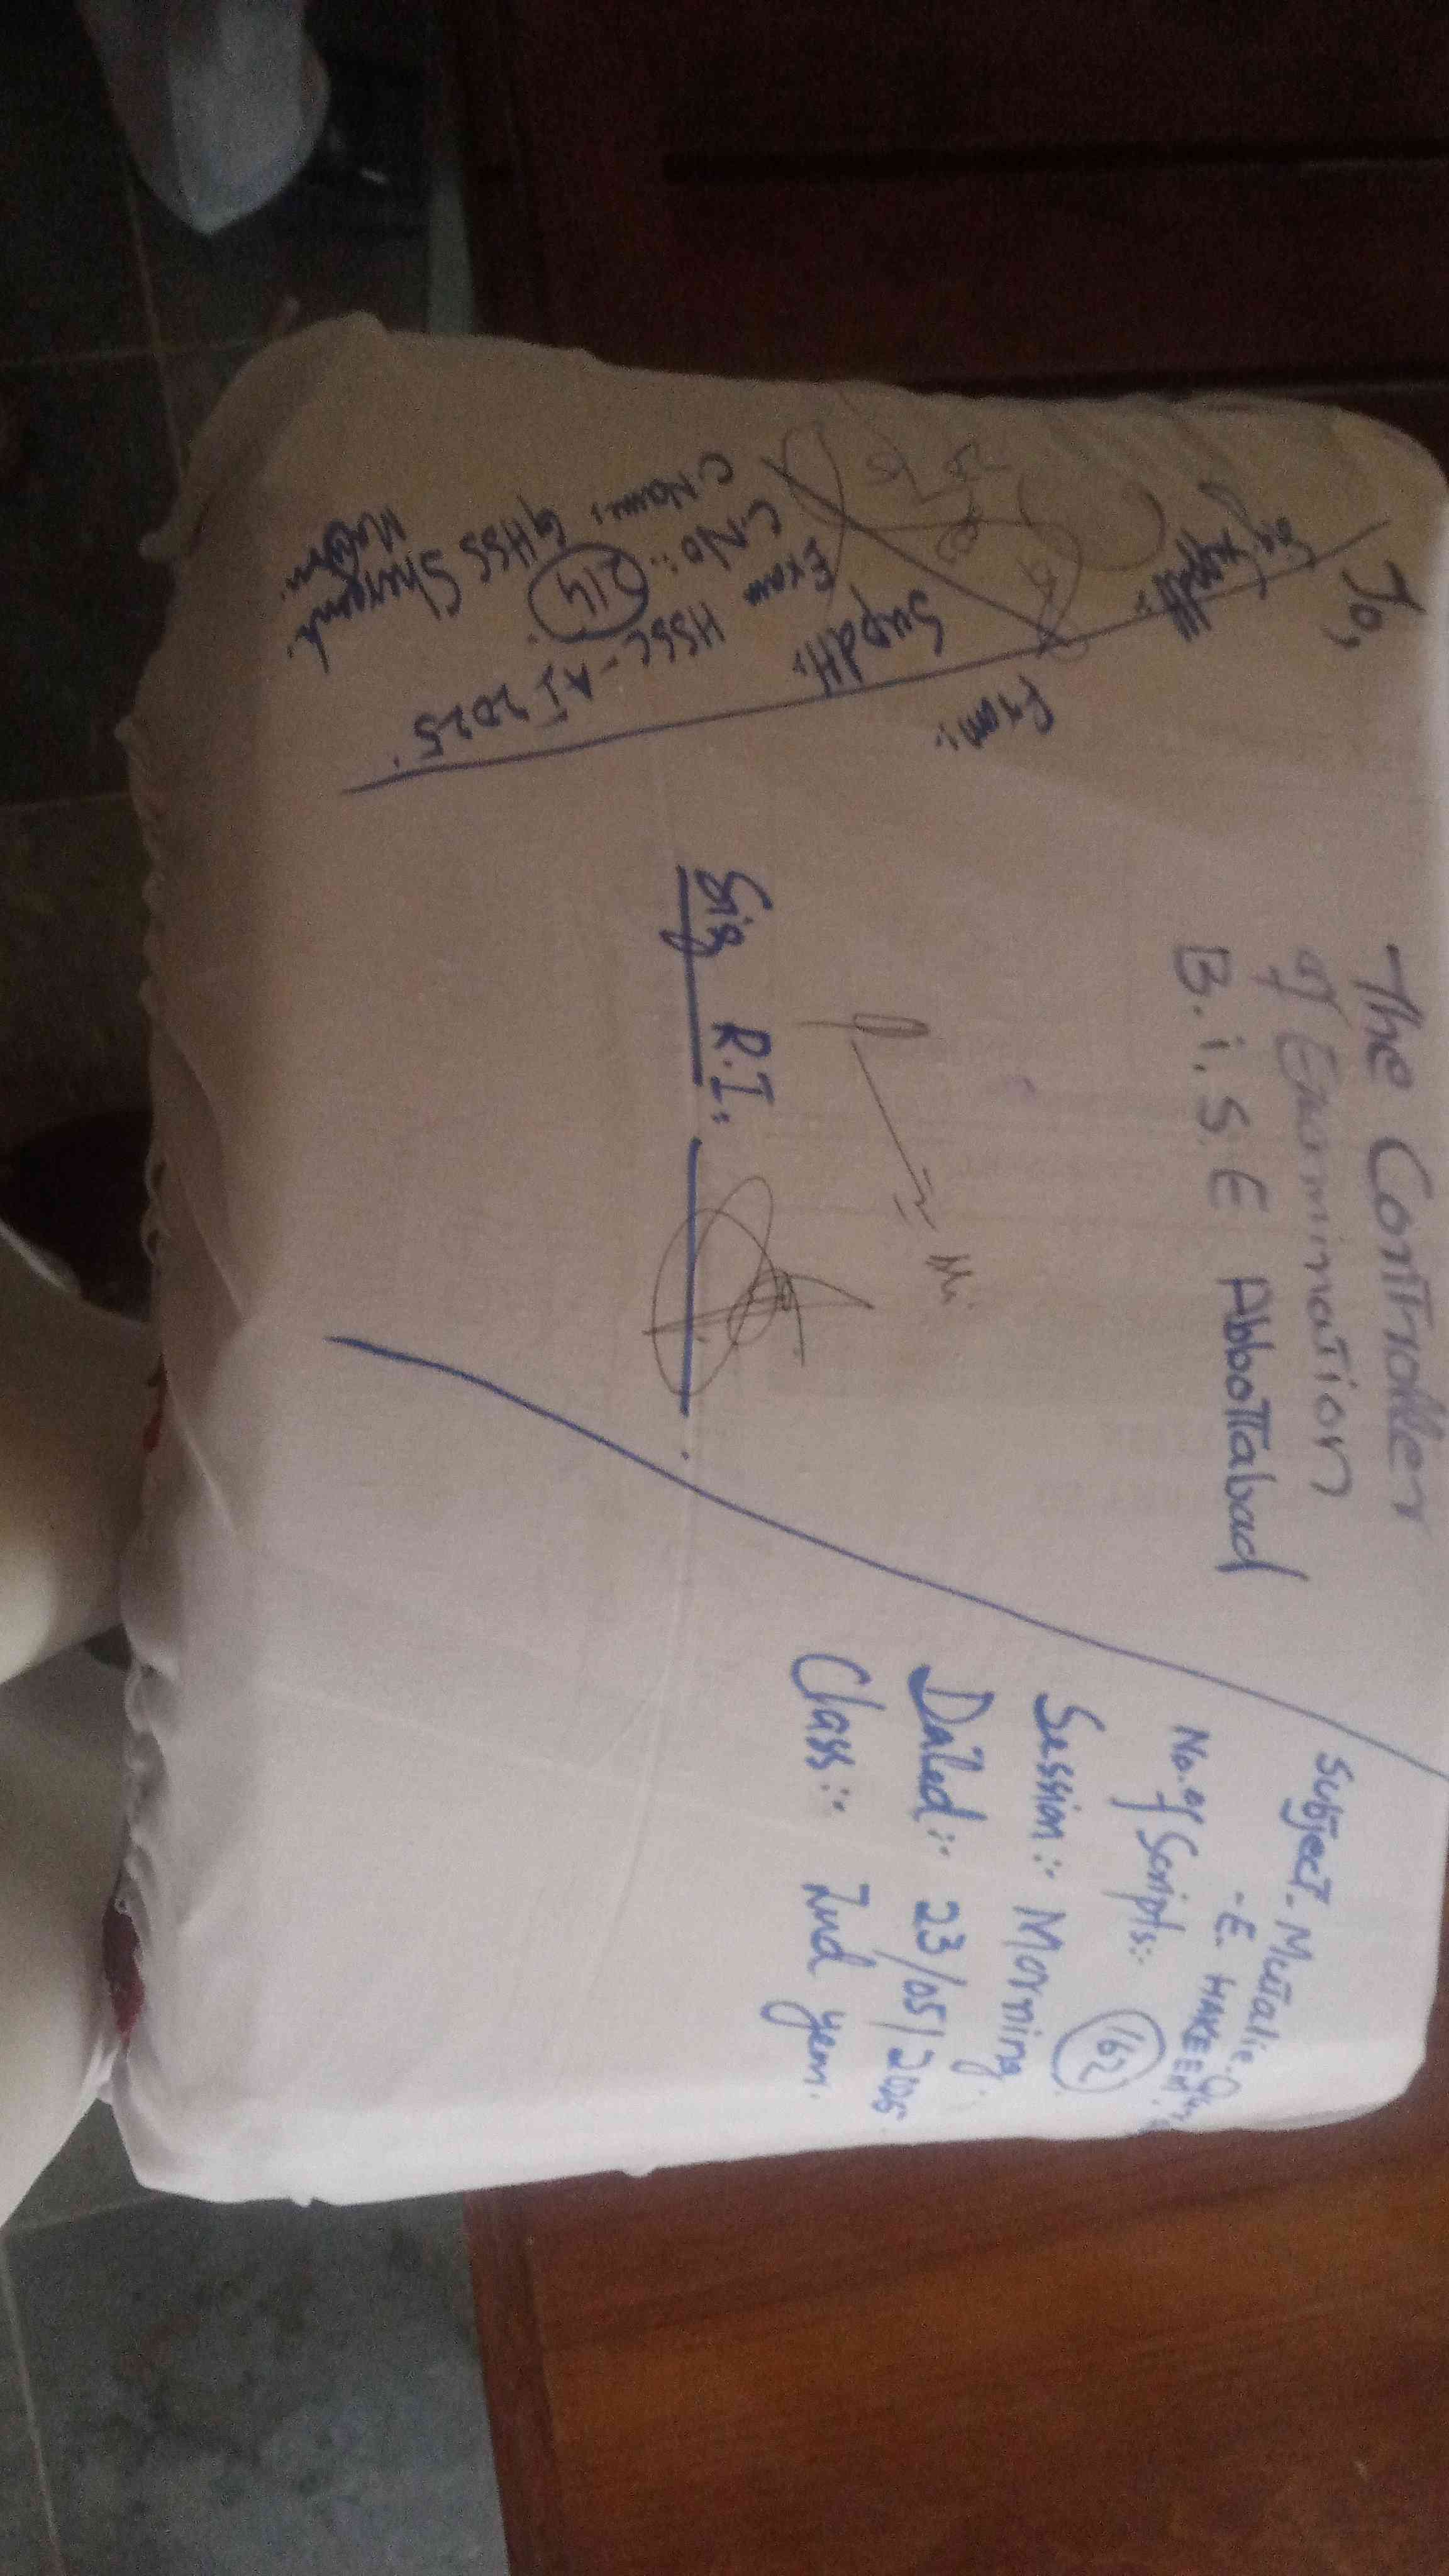 To,
The Controller
of Examination
B.i.S.E Abbottabad
Subject - Mutalie
-E- HAKEEM
No. of Scripts:- 162
Session:- Morning.
Dated:- 23/05/2025
Class:- 2nd year.
Sig R.I:
From:-
Supdtt:
Exam HSSC-AI 2025.
C.No:. 214
C.Name: GHSS